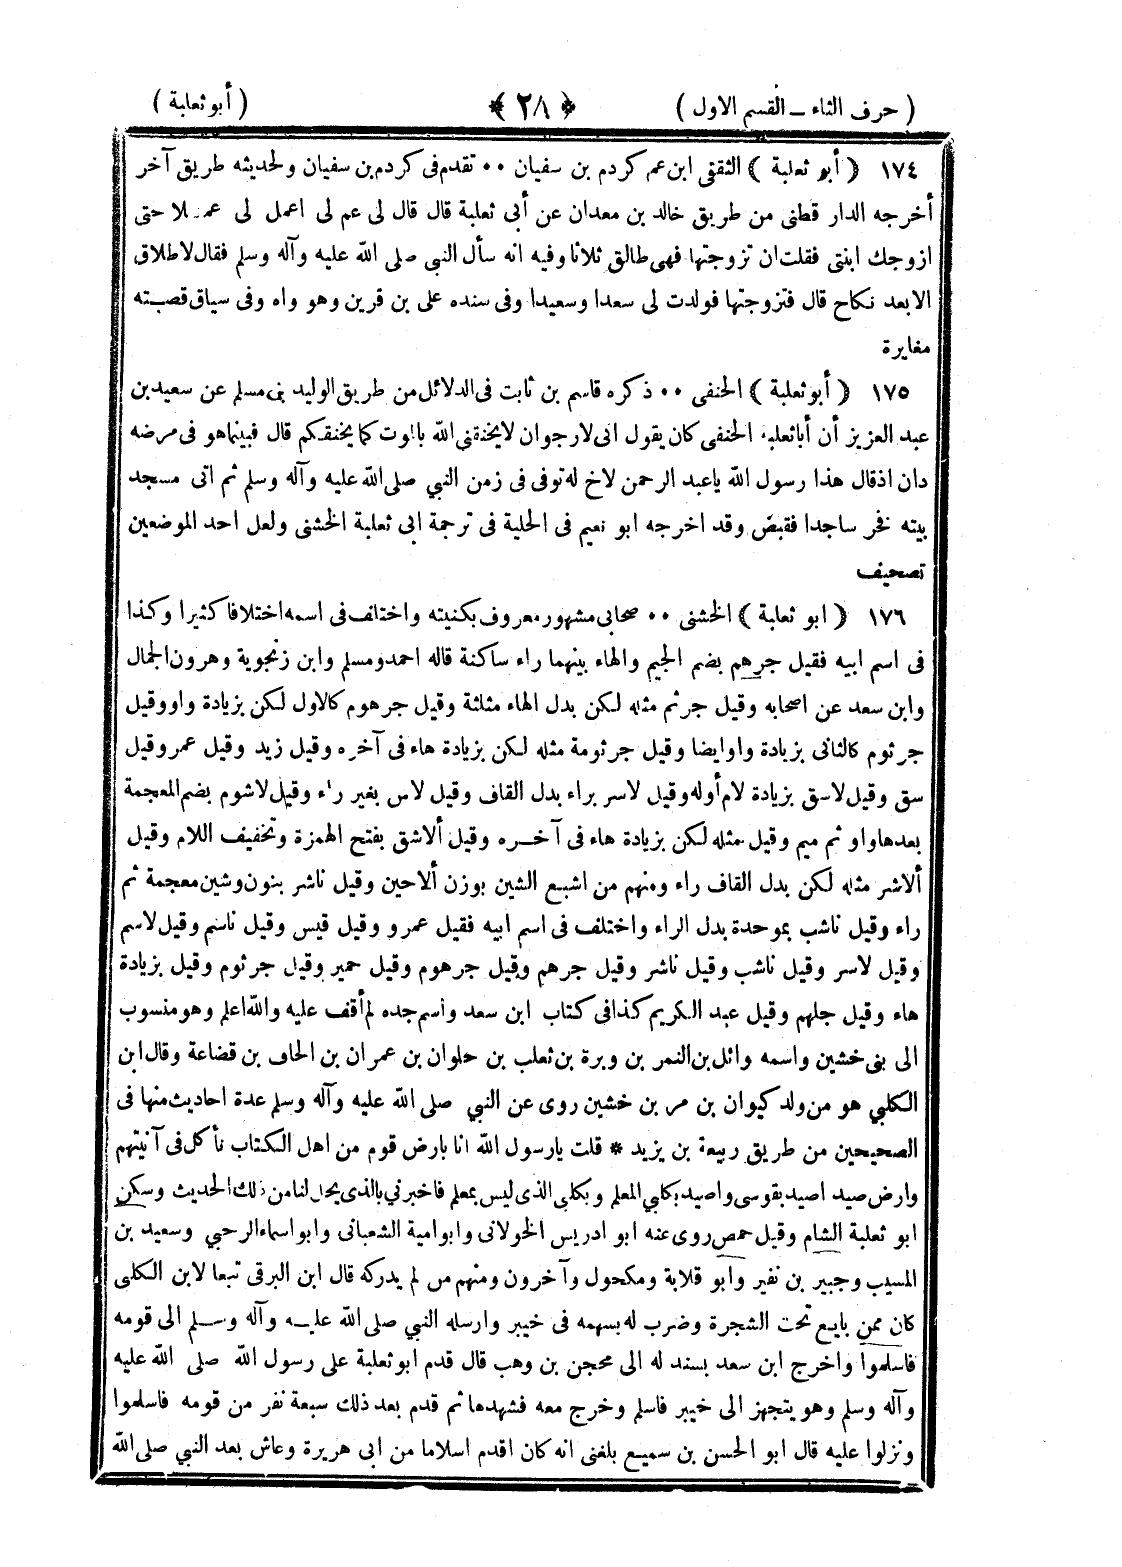 ( حرف الثاء – القسم الاول ) ﴿ ٢٨ ﴾ ( أبو ثعلبة )
١٧٤ ( أبو ثعلبة ) الثقفى ابن عم كردم بن سفيان ٠٠ تقدم فى كردم بن سفيان ولحديثه طريق آخر
أخرجه الدار قطنى من طريق خالد بن معدان عن أبى ثعلبة قال قال لى عم لى اعمل لى عملا حتى
ازوجك ابنتى فقلت ان تزوجتها فهى طالق ثلاثا وفيه انه سأل النبى صلى الله عليه وآله وسلم فقال لا طلاق
الا بعد نكاح قال فتزوجتها فولدت لى سعدا وسعيدا وفى سنده على بن قرين وهو واه وفى سياق قصته
مغايرة
١٧٥ ( أبو ثعلبة ) الحنفى ٠٠ ذكره قاسم بن ثابت فى الدلائل من طريق الوليد بن مسلم عن سعيد بن
عبد العزيز أن أبا ثعلبة الحنفى كان يقول انى لارجو ان لا يخنقنى الله بالموت كما يخنقكم قال فبينما هو فى مرضه
دان اذ قال هذا رسول الله يا عبد الرحمن لاخ له توفى فى زمن النبي صلى الله عليه وآله وسلم ثم اتى مسجد
بيته فخر ساجدا فقبض وقد اخرجه ابو نعيم فى الحلية فى ترجمة ابى ثعلبة الخشنى ولعل احد الموضعين
تصحيف
١٧٦ ( ابو ثعلبة ) الخشنى ٠٠ صحابى مشهور معروف بكنيته واختلف فى اسمه اختلافا كثيرا وكذا
فى اسم ابيه فقيل جرهم بضم الجيم والهاء بينهما راء ساكنة قاله احمد ومسلم وابن زنجوية وهرون الجمال
وابن سعد عن اصحابه وقيل جرثم مثله لكن بدل الهاء مثلثة وقيل جرهوم كالاول لكن بزيادة واو وقيل
جرثوم كالثانى بزيادة واو ايضا وقيل جرثومة مثله لكن بزيادة هاء فى آخره وقيل زيد وقيل عمر وقيل
سق وقيل لاسق بزيادة لام أوله وقيل لاسر براء بدل القاف وقيل لاس بغير راء وقيل لاشوم بضم المعجمة
بعدها واو ثم ميم وقيل مثله لكن بزيادة هاء فى آخـره وقيل ألاشق بفتح الهمزة وتخفيف اللام وقيل
ألاشر مثله لكن بدل القاف راء ومنهم من اشبع الشين بوزن ألاحين وقيل ناشر بنون وشين معجمة ثم
راء وقيل ناشب بموحدة بدل الراء واختلف فى اسم ابيه فقيل عمرو وقيل قيس وقيل ناسم وقيل لاسم
وقيل لاسر وقيل ناشب وقيل ناشر وقيل جرهم وقيل جرهوم وقيل حمير وقيل جرثوم وقيل بزيادة
هاء وقيل جلهم وقيل عبد الكريم كذا فى كتاب ابن سعد واسم جده لم أقف عليه والله اعلم وهو منسوب
الى بنى خشين واسمه وائل بن النمر بن وبرة بن ثعلب بن حلوان بن عمران بن الحاف بن قضاعة وقال ابن
الكلبي هو من ولد كيوان بن مر بن خشين روى عن النبي صلى الله عليه وآله وسلم عدة احاديث منها فى
الصحيحين من طريق ربيعة بن يزيد * قلت يا رسول الله انا بارض قوم من اهل الكتاب نأكل فى آنيتهم
وارض صيد اصيد بقوسى واصيد بكلبي المعلم وبكلبى الذى ليس بمعلم فاخبرني بالذى يحل لنا من ذلك الحديث وسكن
ابو ثعلبة الشام وقيل حمص روى عنه ابو ادريس الخولانى وابو امية الشعبانى وابو اسماء الرحبي وسعيد بن
المسيب وجبير بن نفير وأبو قلابة ومكحول وآخرون ومنهم من لم يدركه قال ابن البرقى تبعا لابن الكلبى
كان ممن بايع تحت الشجرة وضرب له بسهمه فى خيبر وارسله النبي صلى الله عليـه وآله وسـلم الى قومه
فاسلموا واخرج ابن سعد بسند له الى محجن بن وهب قال قدم ابو ثعلبة على رسول الله صلى الله عليه
وآله وسلم وهو يتجهز الى خيبر فاسلم وخرج معه فشهدها ثم قدم بعد ذلك سبعة نفر من قومه فاسلموا
ونزلوا عليه قال ابو الحسن بن سميع بلغنى انه كان اقدم اسلاما من ابى هريرة وعاش بعد النبي صلى الله